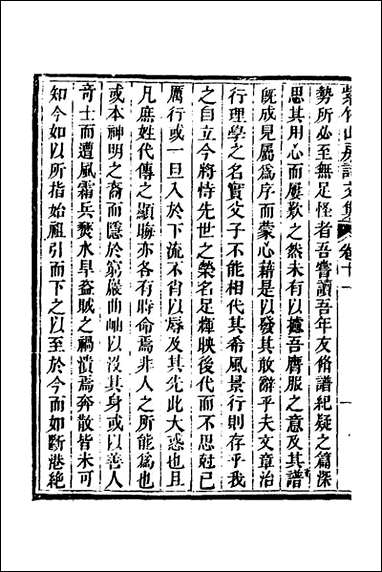 紫竹山房詩文集 卷十一
勢所必至無足怪者吾嘗讀吾年友脩譜紀疑之篇深
思其用心而屢歎之然未有以攄吾膺服之意及其譜
旣成見屬爲序而蒙心藉是以發其敢辭乎夫文章治
行理學之名實父子不能相代其希風景行則存乎我
之自立今將恃先世之榮名足輝映後代而不思愆己
厲行或一旦入於下流不肖以辱及其先此大惑也且
凡庶姓代傳之顯晦亦各有時命焉非人之所能爲也
或本神明之裔而隱於窮巖曲岫以沒其身或以善人
奇士而遭風霜兵燹水旱盗賊之禍潰焉奔散皆未可
知今如以所指始祖引而下之以至於今而如斷港絕